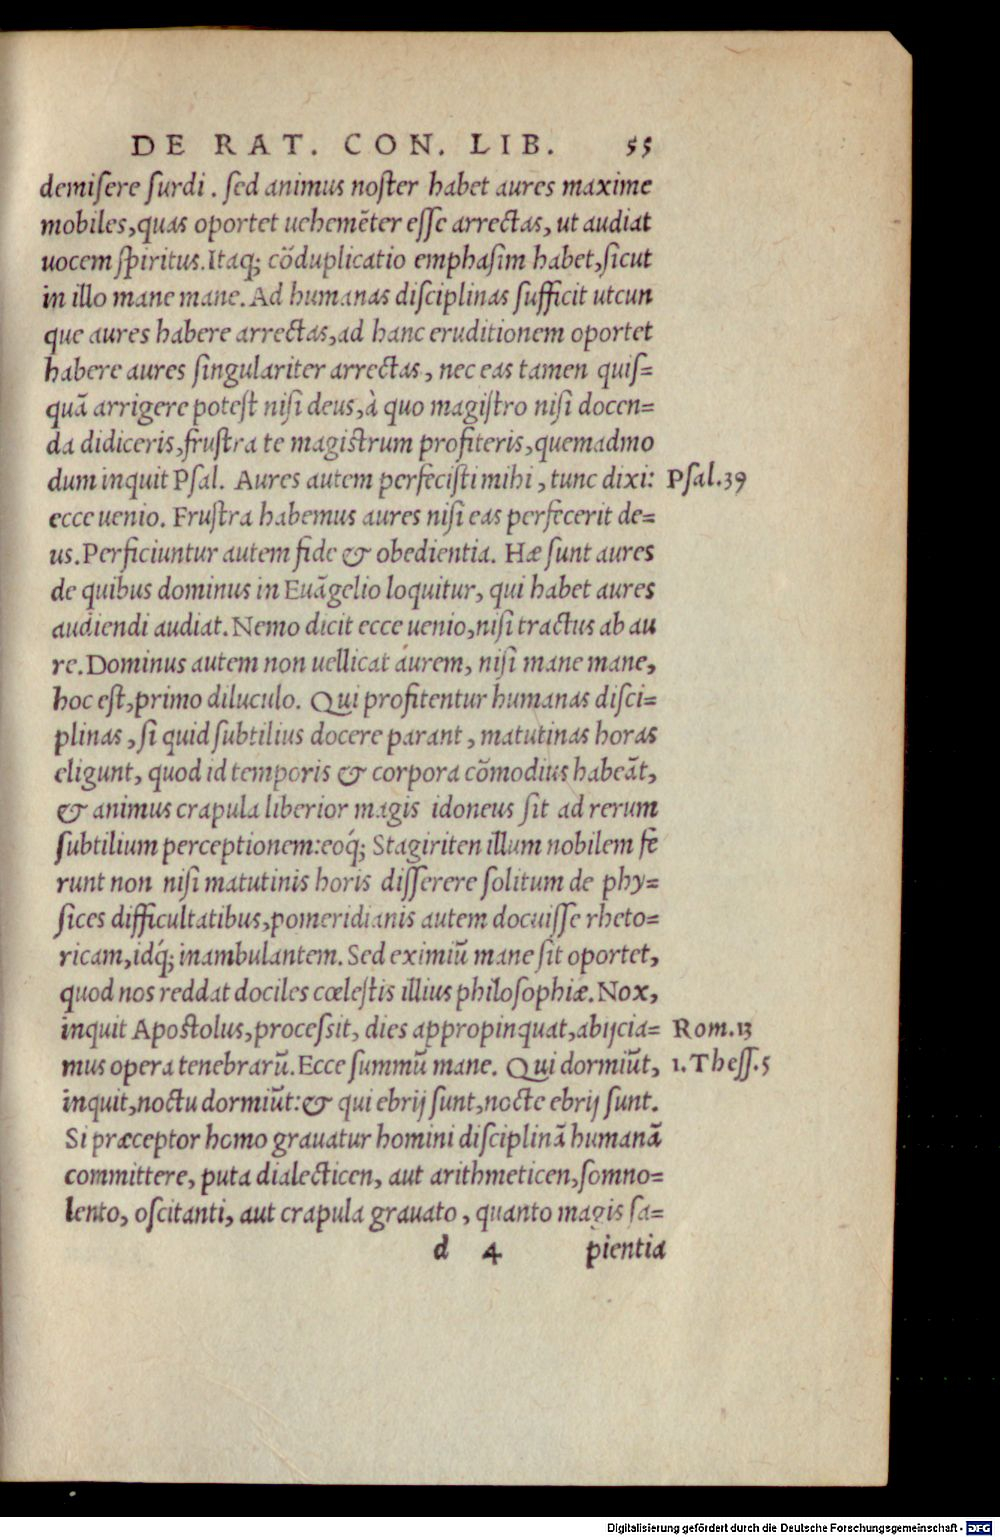 DE RAT. CON. LIB. 55
demiſere ſurdi. ſed animus noſter habet aures maxime
mobiles, quas oportet uehemẽter eſſe arrectas, ut audiat
uocem ſpiritus. Itaq; cõduplicatio emphaſim habet, ſicut
in illo mane mane. Ad humanas diſciplinas ſufficit utcun
que aures habere arrectas, ad hanc eruditionem oportet
habere aures ſingulariter arrectas, nec eas tamen quiſ=
quã arrigere poteſt niſi deus, à quo magiſtro niſi docen=
da didiceris, fruſtra te magiſtrum profiteris, quemadmo
dum inquit Pſal. Aures autem perfeciſti mihi, tunc dixi: Pſal.39
ecce uenio. Fruſtra habemus aures niſi eas perfecerit de=
us. Perficiuntur autem fide & obedientia. Hæ ſunt aures
de quibus dominus in Euãgelio loquitur, qui habet aures
audiendi audiat. Nemo dicit ecce uenio, niſi tractus ab au
re. Dominus autem non uellicat aurem, niſi mane mane,
hoc eſt, primo diluculo. Qui profitentur humanas diſci=
plinas, ſi quid ſubtilius docere parant, matutinas horas
eligunt, quod id temporis & corpora cõmodius habeãt,
& animus crapula liberior magis idoneus ſit ad rerum
ſubtilium perceptionem: eoq́; Stagiriten illum nobilem fe
runt non niſi matutinis horis diſſerere ſolitum de phy=
ſices difficultatibus, pomeridianis autem docuiſſe rheto=
ricam, idq́; inambulantem. Sed eximiũ mane ſit oportet,
quod nos reddat dociles cœleſtis illius philoſophiæ. Nox,
inquit Apoſtolus, proceſsit, dies appropinquat, abijcia= Rom.13
mus opera tenebrarũ. Ecce ſummũ mane. Qui dormiũt, 1.Theſſ.5
inquit, noctu dormiũt: & qui ebrij ſunt, nocte ebrij ſunt.
Si præceptor homo grauatur homini diſciplinã humanã
committere, puta dialecticen, aut arithmeticen, ſomno=
lento, oſcitanti, aut crapula grauato, quanto magis ſa=
d 4 pientia
Digitalisierung gefördert durch die Deutsche Forschungsgemeinschaft - DFG